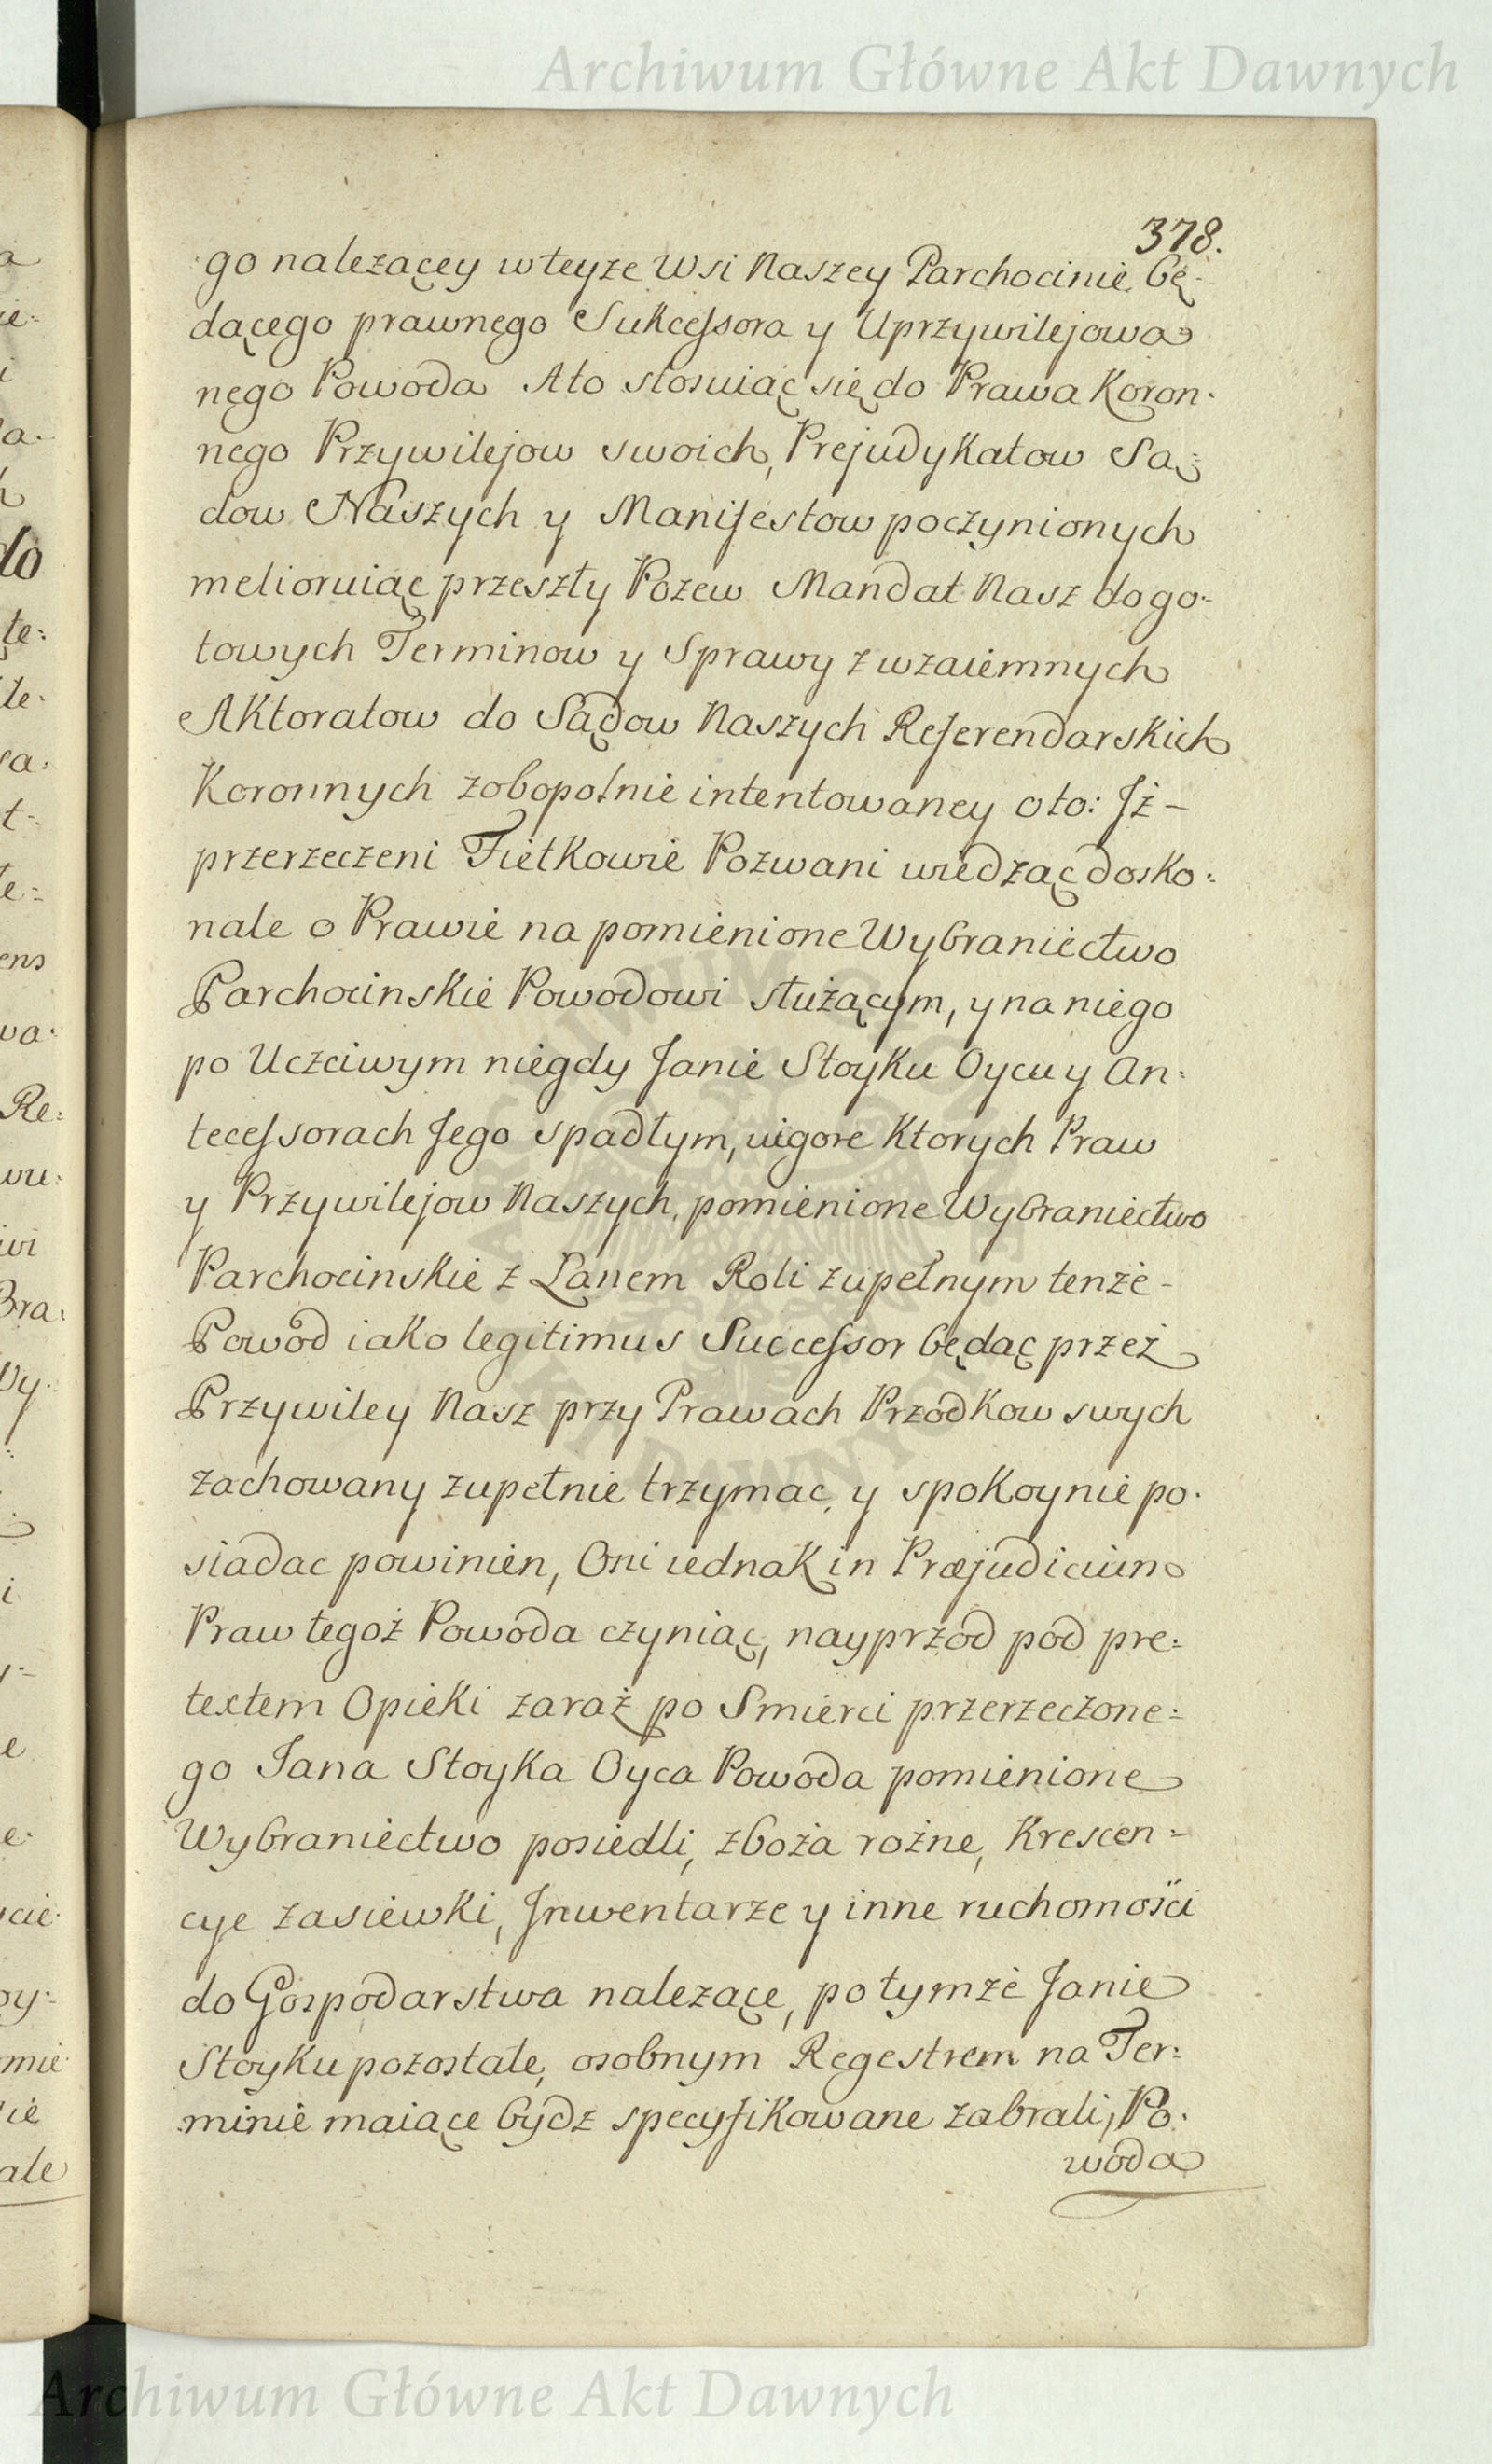 Archiwum Główne Akt Dawnych
378.
go nalezącey w teyze Wsi Naszey Parchocinie bę-
dącego prawnego Sukcessora y Uprzywilejowa
nego Powoda A to stosuiąc się do Prawa Koron-
nego Przywilejow swoich, Prejudykatow Są=
dow Naszych y Manifestow poczynionych
melioruiąc przeszły Pozew Mandat Nasz do go-
towych Terminow y Sprawy z wzaiemnych
Aktoratow do Sądow Naszych Referendarskich
Koronnych zobopolnie intentowaney oto: Jż -
przerzeczeni Fietkowie Pozwani wiedząc dosko:
nale o Prawie na pomienione Wybraniectwo
Parchocinskie Powodowi służącym, y na niego
po Uczciwym niegdy Janie Stoyku Oycu y An:
tecessorach Jego spadłym, vigore Ktorych Praw
y Przywilejow Naszych, pomienione Wybraniectwo
Parchocinskie z Łanem Roli zupełnym tenże -
Powod iako legitimus Successor będąc przeż
Przywiley Nasz przy Prawach Przodkow swych
zachowany zupełnie trzymac, y spokoynie po-
siadac powinien, Oni iednak in Præjudicium
Praw tegoż Powoda czyniąc, nayprzod pod pre=
textem Opieki zaraż po Smierci przerzeczone=
go Jana Stoyka Oyca Powoda pomienione
Wybraniectwo posiedli, zboża rożne, Krescen=
cye zasiewki, Jnwentarze y inne ruchomości
do Gospodarstwa nalezące, po tymże Janie
Stoyku pozostałe, osobnym Regestrem na Ter:
minie maiące bydz specyfikowane zabrali, Po-
woda
Archiwum Główne Akt Dawnych